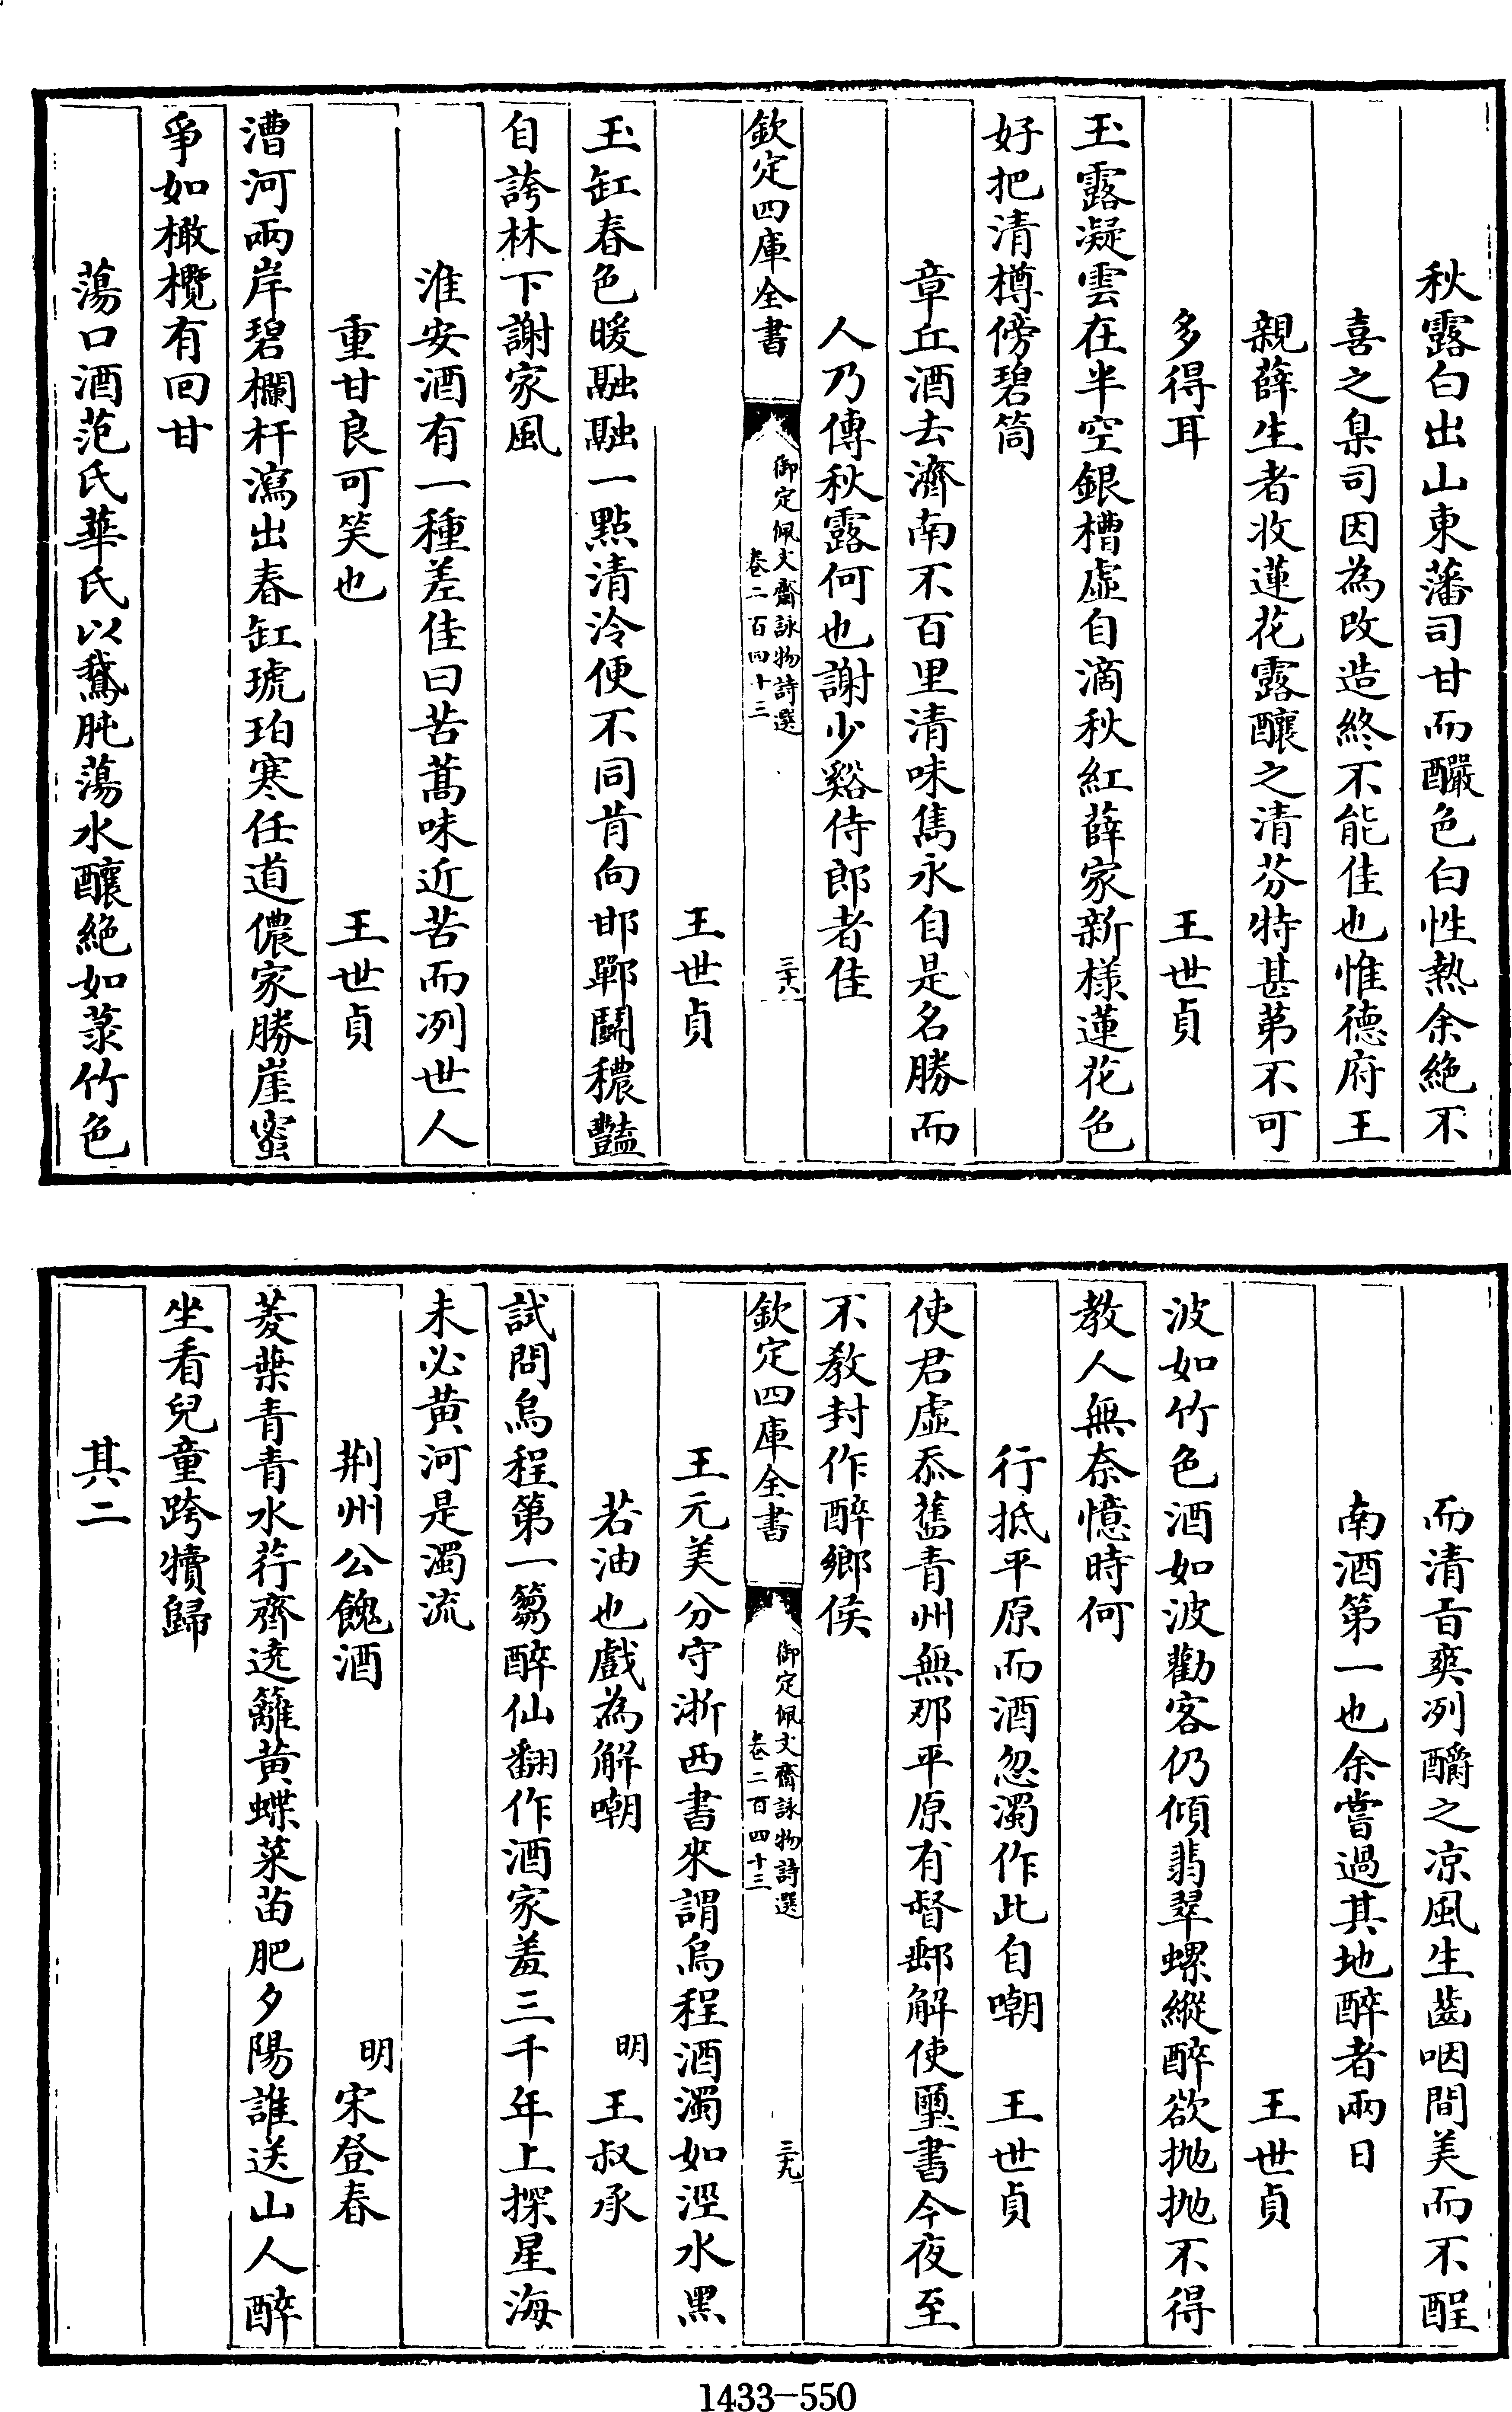 秋露白出山東藩司甘而釅色白性熱余絶不
喜之臬司因為改造終不能佳也惟德府王
親薛生者收蓮花露釀之清芬特甚苐不可
多得耳　王世貞
玉露凝雲在半空銀槽虛自滴秋紅薛家新様蓮花色
好把清樽傍碧筒
章丘酒去濟南不百里清味雋永自是名勝而
人乃傳秋露何也謝少谿侍郎者佳
欽定四庫全書　御定佩文齋詠物詩選　卷二百四十三　三十八
王世貞
玉缸春色暖融融一點清泠便不同肯向邯鄲鬭穠豔
自誇林下謝家風
淮安酒有一種差佳曰苦蒿味近苦而冽世人
重甘良可笑也　王世貞
漕河兩岸碧欄杆瀉出春缸琥珀寒任道儂家勝崖蜜
爭如橄欖有回甘
蕩口酒范氏華氏以鵞肫蕩水釀絶如菉竹色
而清旨爽冽釂之凉風生齒咽間美而不酲
南酒第一也余嘗過其地醉者兩日
王世貞
波如竹色酒如波勸客仍傾翡翠螺縱醉欲抛抛不得
教人無奈憶時何
行抵平原而酒忽濁作此自嘲　王世貞
使君虛忝舊青州無那平原有督郵解使璽書今夜至
不教封作醉鄉侯
欽定四庫全書　御定佩文齋詠物詩選　卷二百四十三　三十九
王元美分守浙西書來謂烏程酒濁如涇水黑
若油也戲為解嘲　明　王叔承
試問烏程第一篘醉仙翻作酒家羞三千年上探星海
未必黄河是濁流
荆州公餽酒　明　宋登春
菱葉青青水荇齊遶籬黄蝶菜苗肥夕陽誰送山人醉
坐看兒童跨犢歸
其二
1433-550